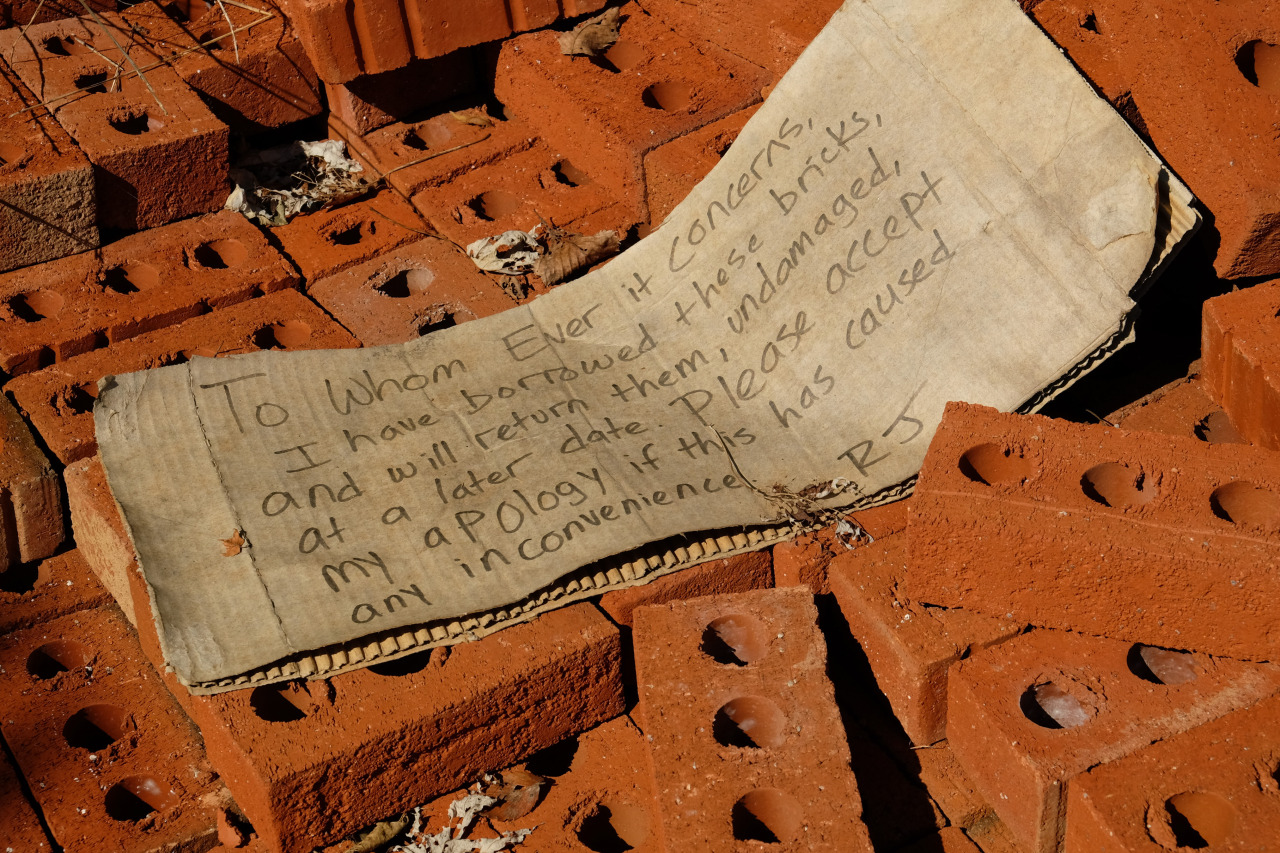 To Whom Ever it concerns,
I have borrowed these bricks,
and will return them, undamaged,
at a later date. Please accept
my apology if this has caused
any inconvenience
RJ